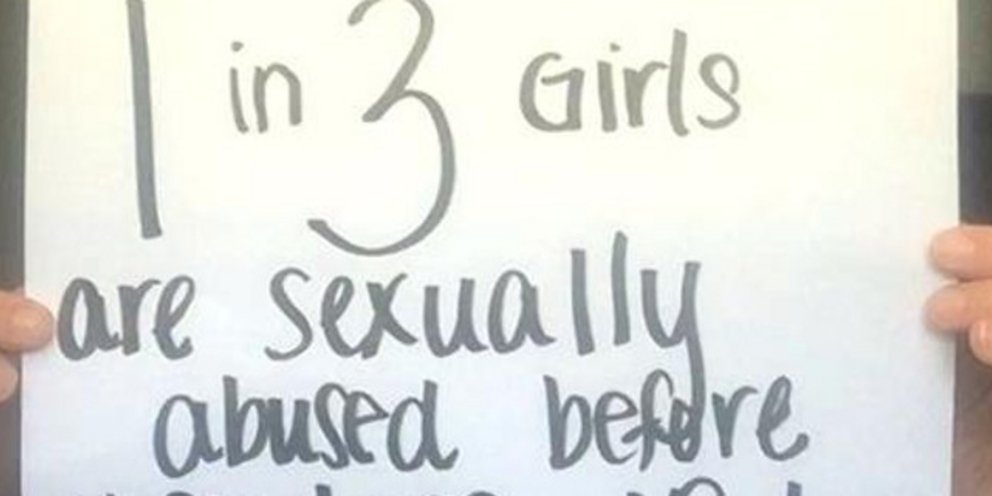 1 in 3 Girls
are sexually
abused before